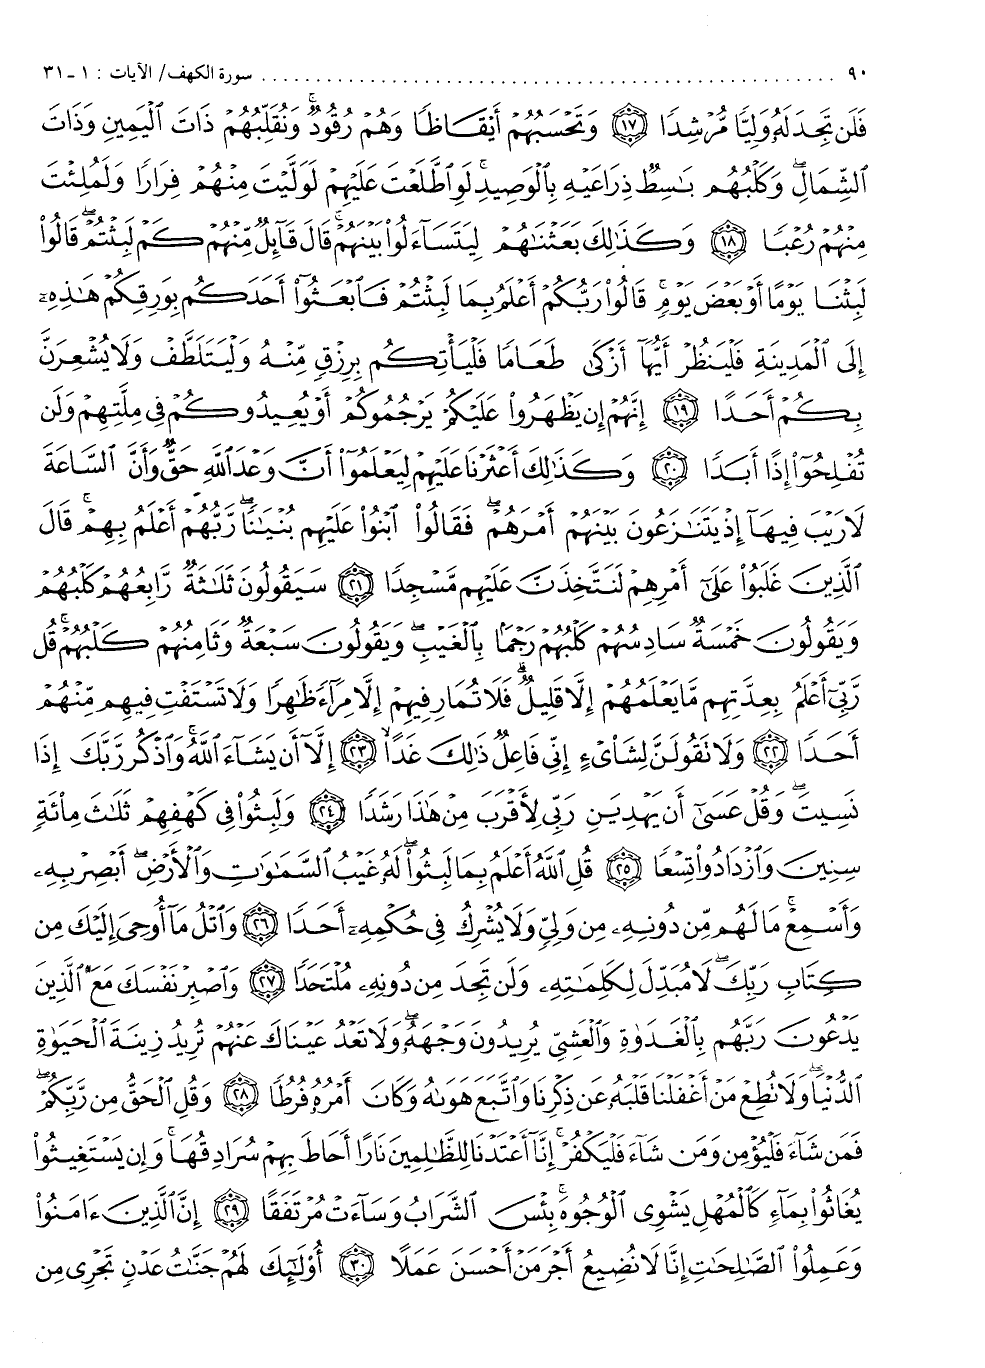 ٩٠ ........ سورة الكهف/ الآيات : ١ - ٣١
فَلَن تَجِدَ لَهُۥ وَلِيًّا مُّرْشِدًا ﴿١٧﴾ وَتَحْسَبُهُمْ أَيْقَاظًا وَهُمْ رُقُودٌ ۚ وَنُقَلِّبُهُمْ ذَاتَ ٱلْيَمِينِ وَذَاتَ
ٱلشِّمَالِ ۖ وَكَلْبُهُم بَـٰسِطٌ ذِرَاعَيْهِ بِٱلْوَصِيدِ ۚ لَوِ ٱطَّلَعْتَ عَلَيْهِمْ لَوَلَّيْتَ مِنْهُمْ فِرَارًا وَلَمُلِئْتَ
مِنْهُمْ رُعْبًا ﴿١٨﴾ وَكَذَٰلِكَ بَعَثْنَـٰهُمْ لِيَتَسَآءَلُوا۟ بَيْنَهُمْ ۚ قَالَ قَآئِلٌ مِّنْهُمْ كَمْ لَبِثْتُمْ ۖ قَالُوا۟
لَبِثْنَا يَوْمًا أَوْ بَعْضَ يَوْمٍ ۚ قَالُوا۟ رَبُّكُمْ أَعْلَمُ بِمَا لَبِثْتُمْ فَٱبْعَثُوٓا۟ أَحَدَكُم بِوَرِقِكُمْ هَـٰذِهِۦٓ
إِلَى ٱلْمَدِينَةِ فَلْيَنظُرْ أَيُّهَآ أَزْكَىٰ طَعَامًا فَلْيَأْتِكُم بِرِزْقٍ مِّنْهُ وَلْيَتَلَطَّفْ وَلَا يُشْعِرَنَّ
بِكُمْ أَحَدًا ﴿١٩﴾ إِنَّهُمْ إِن يَظْهَرُوا۟ عَلَيْكُمْ يَرْجُمُوكُمْ أَوْ يُعِيدُوكُمْ فِى مِلَّتِهِمْ وَلَن
تُفْلِحُوٓا۟ إِذًا أَبَدًا ﴿٢٠﴾ وَكَذَٰلِكَ أَعْثَرْنَا عَلَيْهِمْ لِيَعْلَمُوٓا۟ أَنَّ وَعْدَ ٱللَّهِ حَقٌّ وَأَنَّ ٱلسَّاعَةَ
لَا رَيْبَ فِيهَآ إِذْ يَتَنَـٰزَعُونَ بَيْنَهُمْ أَمْرَهُمْ ۖ فَقَالُوا۟ ٱبْنُوا۟ عَلَيْهِم بُنْيَـٰنًا ۖ رَّبُّهُمْ أَعْلَمُ بِهِمْ ۚ قَالَ
ٱلَّذِينَ غَلَبُوا۟ عَلَىٰٓ أَمْرِهِمْ لَنَتَّخِذَنَّ عَلَيْهِم مَّسْجِدًا ﴿٢١﴾ سَيَقُولُونَ ثَلَـٰثَةٌ رَّابِعُهُمْ كَلْبُهُمْ
وَيَقُولُونَ خَمْسَةٌ سَادِسُهُمْ كَلْبُهُمْ رَجْمًۢا بِٱلْغَيْبِ ۖ وَيَقُولُونَ سَبْعَةٌ وَثَامِنُهُمْ كَلْبُهُمْ ۚ قُل
رَّبِّىٓ أَعْلَمُ بِعِدَّتِهِم مَّا يَعْلَمُهُمْ إِلَّا قَلِيلٌ ۗ فَلَا تُمَارِ فِيهِمْ إِلَّا مِرَآءً ظَـٰهِرًا وَلَا تَسْتَفْتِ فِيهِم مِّنْهُمْ
أَحَدًا ﴿٢٢﴾ وَلَا تَقُولَنَّ لِشَا۟ىْءٍ إِنِّى فَاعِلٌ ذَٰلِكَ غَدًا ﴿٢٣﴾ إِلَّآ أَن يَشَآءَ ٱللَّهُ ۚ وَٱذْكُر رَّبَّكَ إِذَا
نَسِيتَ ۖ وَقُلْ عَسَىٰٓ أَن يَهْدِيَنِ رَبِّى لِأَقْرَبَ مِنْ هَـٰذَا رَشَدًا ﴿٢٤﴾ وَلَبِثُوا۟ فِى كَهْفِهِمْ ثَلَـٰثَ مِا۟ئَةٍ
سِنِينَ وَٱزْدَادُوا۟ تِسْعًا ﴿٢٥﴾ قُلِ ٱللَّهُ أَعْلَمُ بِمَا لَبِثُوا۟ ۖ لَهُۥ غَيْبُ ٱلسَّمَـٰوَٰتِ وَٱلْأَرْضِ ۖ أَبْصِرْ بِهِۦ
وَأَسْمِعْ ۚ مَا لَهُم مِّن دُونِهِۦ مِن وَلِىٍّ وَلَا يُشْرِكُ فِى حُكْمِهِۦٓ أَحَدًا ﴿٢٦﴾ وَٱتْلُ مَآ أُوحِىَ إِلَيْكَ مِن
كِتَابِ رَبِّكَ ۖ لَا مُبَدِّلَ لِكَلِمَـٰتِهِۦ وَلَن تَجِدَ مِن دُونِهِۦ مُلْتَحَدًا ﴿٢٧﴾ وَٱصْبِرْ نَفْسَكَ مَعَ ٱلَّذِينَ
يَدْعُونَ رَبَّهُم بِٱلْغَدَوٰةِ وَٱلْعَشِىِّ يُرِيدُونَ وَجْهَهُۥ ۖ وَلَا تَعْدُ عَيْنَاكَ عَنْهُمْ تُرِيدُ زِينَةَ ٱلْحَيَوٰةِ
ٱلدُّنْيَا ۖ وَلَا تُطِعْ مَنْ أَغْفَلْنَا قَلْبَهُۥ عَن ذِكْرِنَا وَٱتَّبَعَ هَوَىٰهُ وَكَانَ أَمْرُهُۥ فُرُطًا ﴿٢٨﴾ وَقُلِ ٱلْحَقُّ مِن رَّبِّكُمْ ۖ
فَمَن شَآءَ فَلْيُؤْمِن وَمَن شَآءَ فَلْيَكْفُرْ ۚ إِنَّآ أَعْتَدْنَا لِلظَّـٰلِمِينَ نَارًا أَحَاطَ بِهِمْ سُرَادِقُهَا ۚ وَإِن يَسْتَغِيثُوا۟
يُغَاثُوا۟ بِمَآءٍ كَٱلْمُهْلِ يَشْوِى ٱلْوُجُوهَ ۚ بِئْسَ ٱلشَّرَابُ وَسَآءَتْ مُرْتَفَقًا ﴿٢٩﴾ إِنَّ ٱلَّذِينَ ءَامَنُوا۟
وَعَمِلُوا۟ ٱلصَّـٰلِحَـٰتِ إِنَّا لَا نُضِيعُ أَجْرَ مَنْ أَحْسَنَ عَمَلًا ﴿٣٠﴾ أُو۟لَـٰٓئِكَ لَهُمْ جَنَّـٰتُ عَدْنٍ تَجْرِى مِن